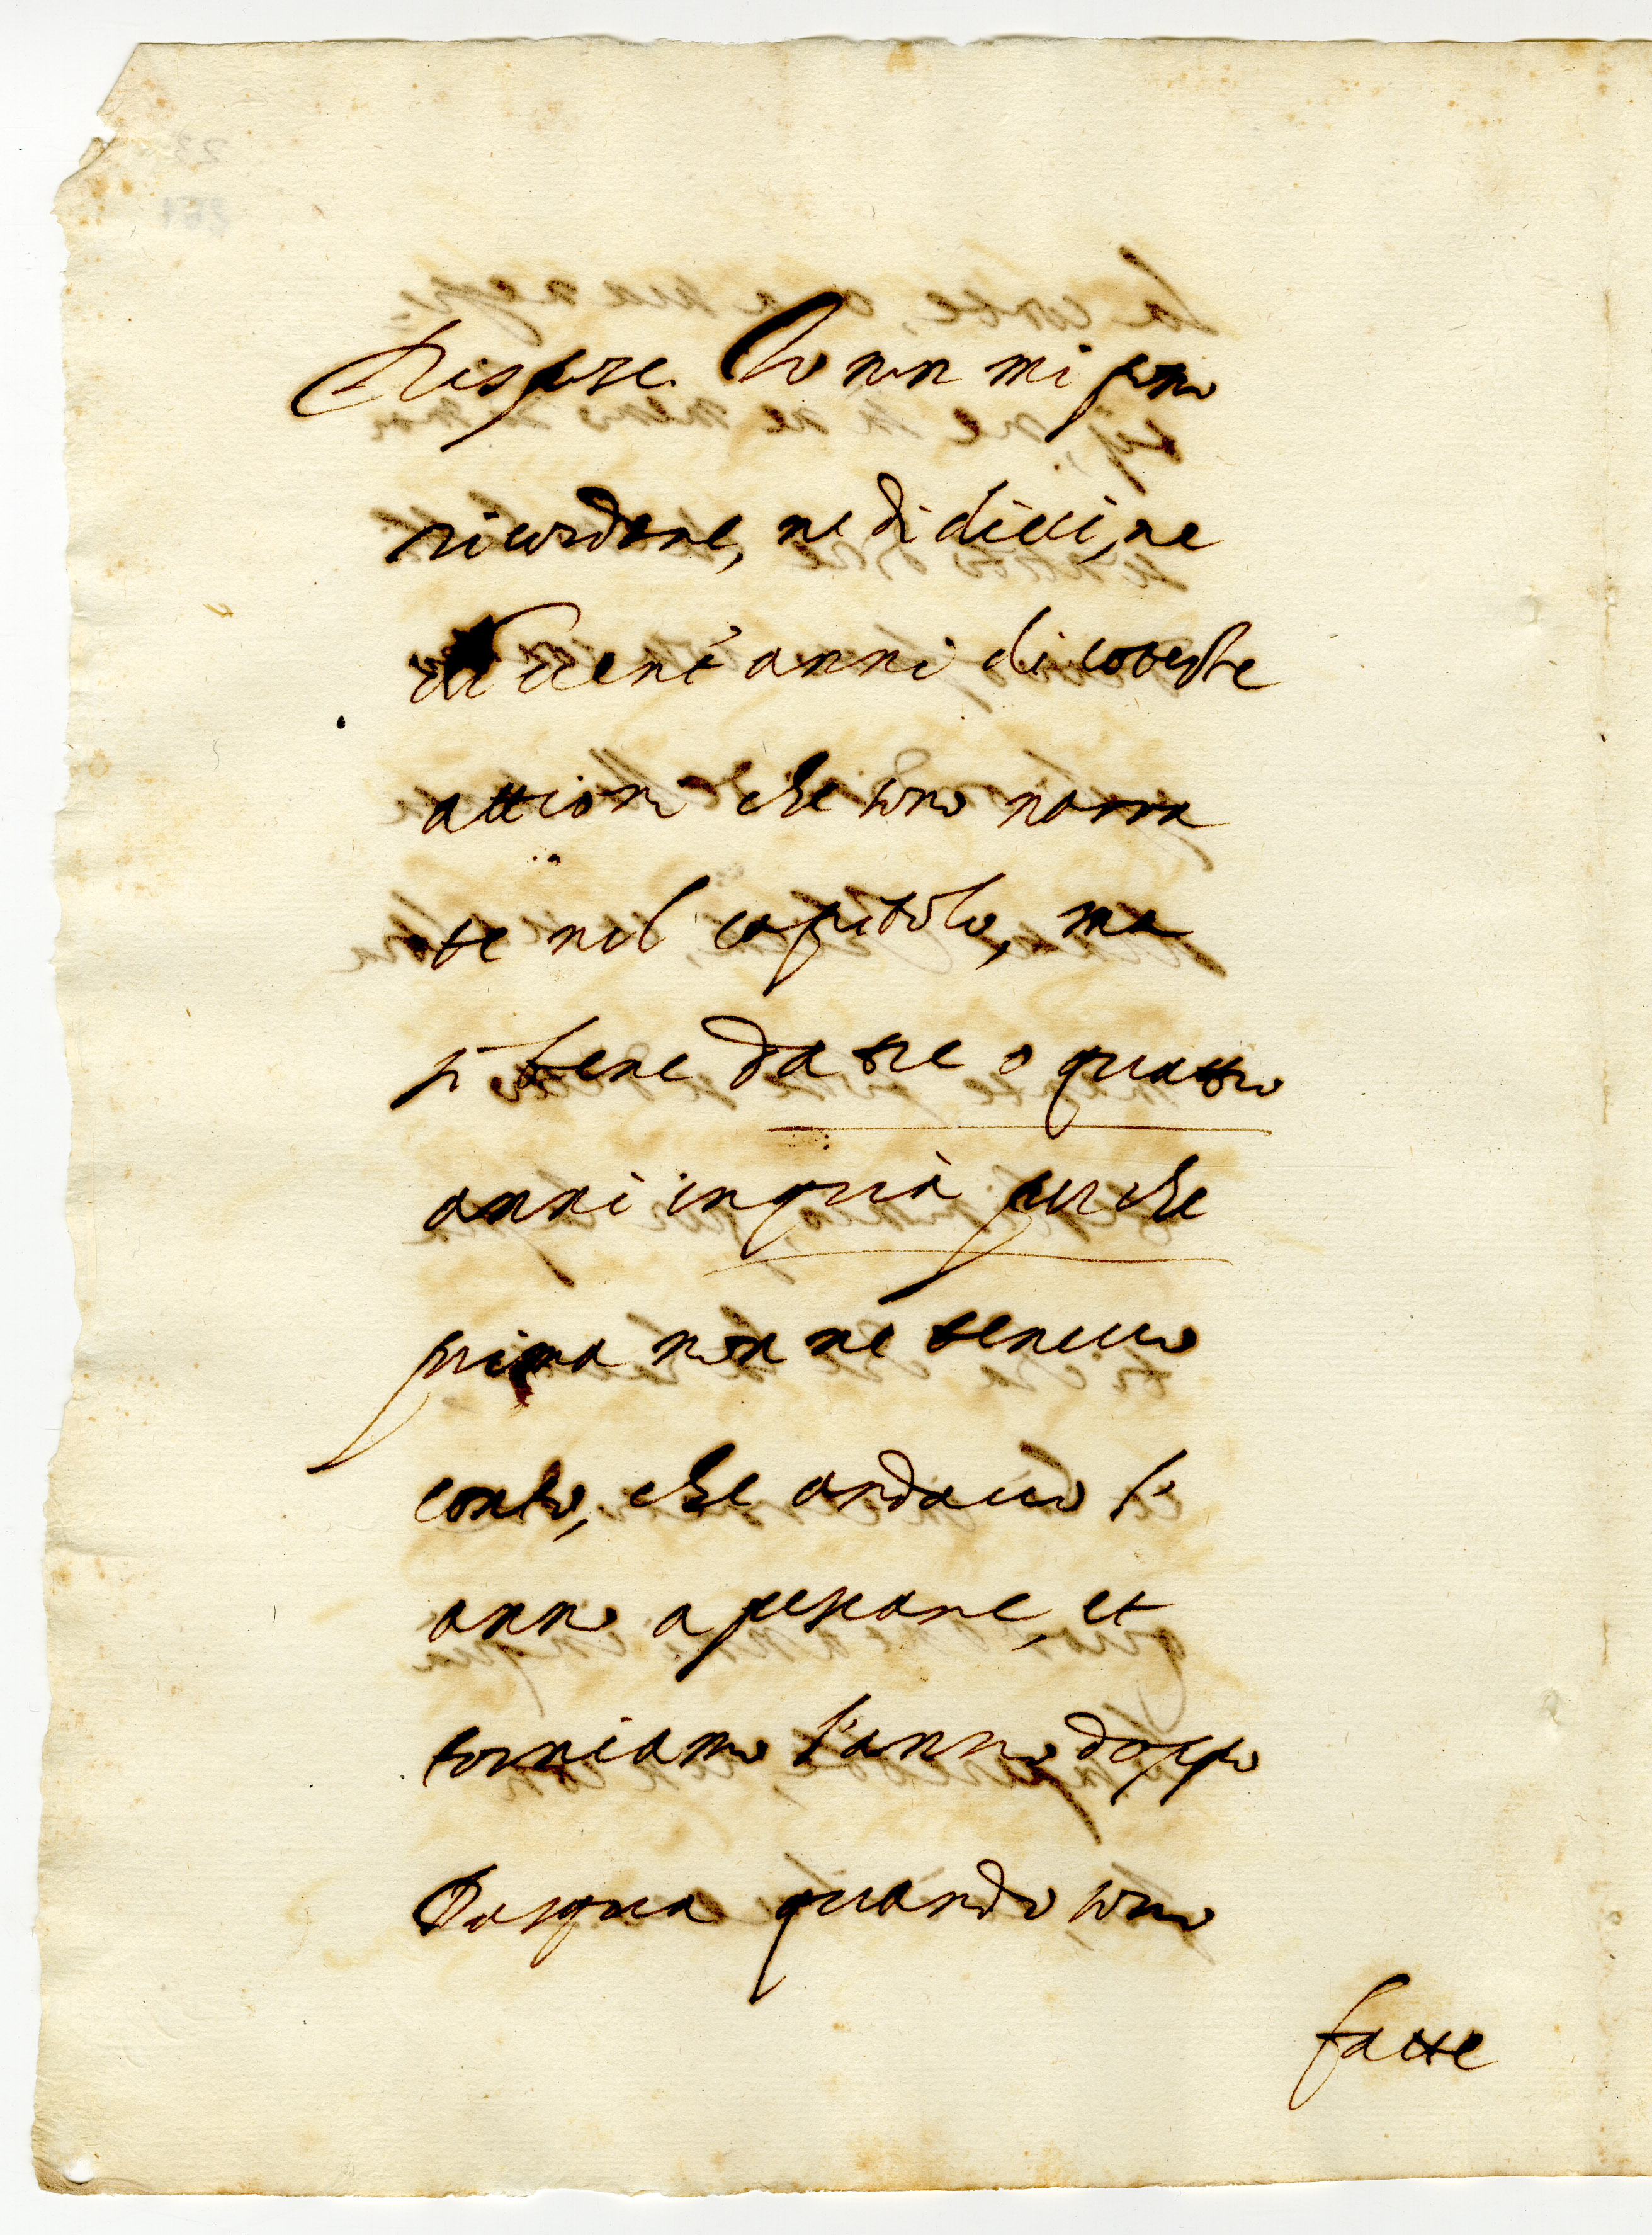 Rispose Io non mi posso
ricordare, ne di dieci, ne
di venti anni di coteste
attioni che sono narra
te nel capitolo, ma
si bene da tre o quattro
anni in quà perche
prima non ne tenevo
conto, che andavo l'
anno a pescare, et
torniamo l'anno doppo
Pasqua quando sono
fatte